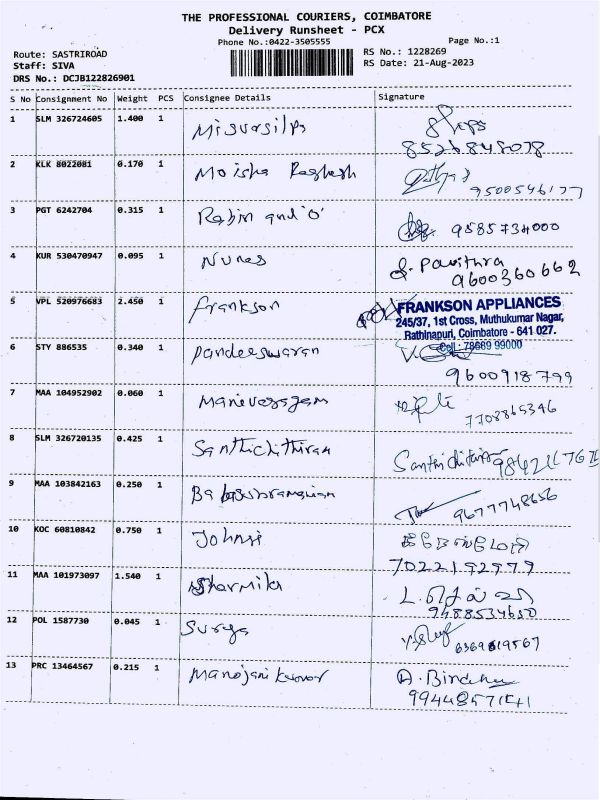 THE PROFESSIONAL COURIERS, COIMBATORE
Delivery Runsheet - PCX
Phone No.:0422-3505555
Page No.:1
Route: SASTRIROAD
RS No.: 1228269
Staff: SIVA
RS Date: 21-Aug-2023
DRS No.: DCJB122826901
S No Consignment No Weight PCS Consignee Details Signature
1 SLM 326724605 1.400 1
8526848078
2 KLK 8022081 0.170 1
3 PGT 6242704 0.315 1 9585734000
4 KUR 530470947 0.095 1 Nunes S. Pavithra
9600360662
5 VPL 520976683 2.450 1 frankson FRANKSON APPLIANCES
245/37, 1st Cross, Muthukumar Nagar,
Rathinapuri, Coimbatore - 641 027.
Cell : 78689 99000
6 STY 886535 0.340 1 Pandeeswaran
9600918799
7 MAA 104952902 0.060 1
7708865346
8 SLM 326720135 0.425 1 Santhichithiran
9 MAA 103842163 0.250 1
9677748656
10 KOC 60810842 0.750 1 Johnsi
7022192979
11 MAA 101973097 1.540 1 Sharmila
9488534650
12 POL 1587730 0.045 1 Surya
6369819567
13 PRC 13464567 0.215 1 A. Bindhu